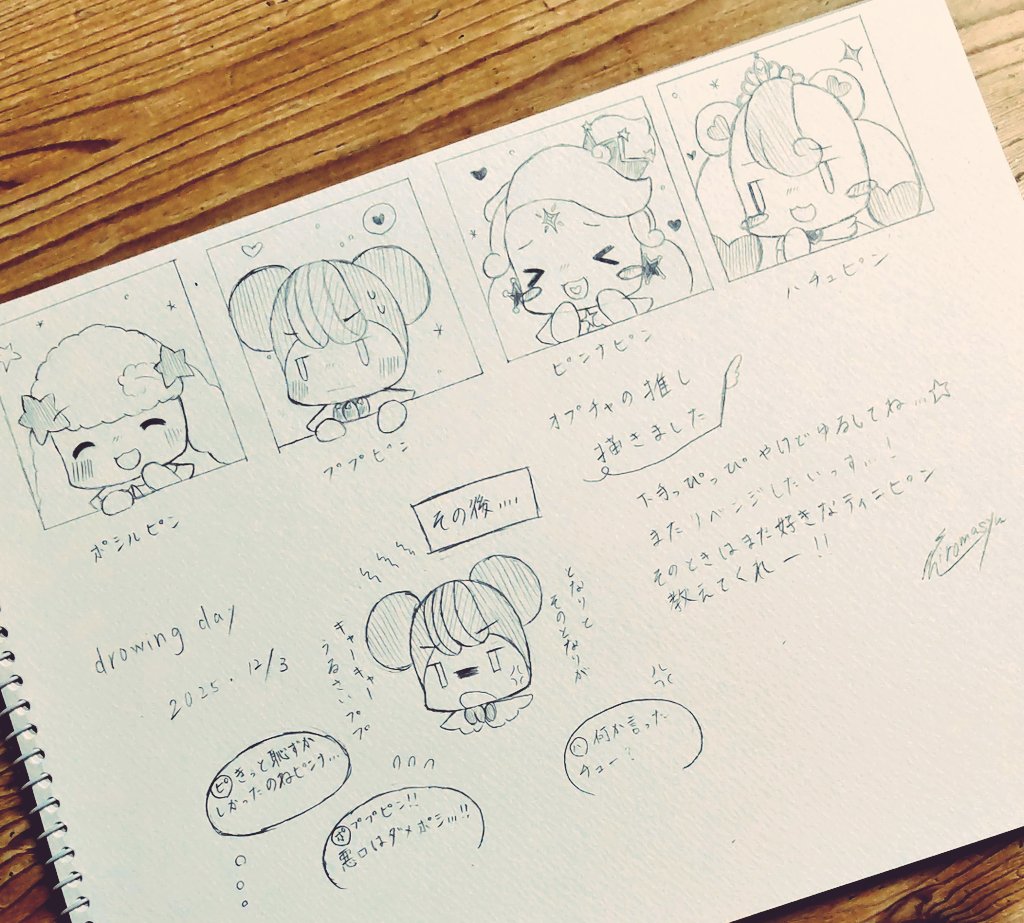 ポシルピン
ププピン
ピンナピン
ハチュピン
オプチャの推し
描きました
下手っぴっぴやけどゆるしてね…☆
またリベンジしたいっす…!
そのときはまた好きなティニピン
教えてくれー!!
Hiromasyu
その後….
drowing day
2025.12/3
となりと
そのとなりが
キャーキャー
うるさいププ
ピ きっと恥ずか
しかったのねピンナ…
ポ ププピン!!
悪口はダメポシ…!!
ハ 何か言った
チュー?